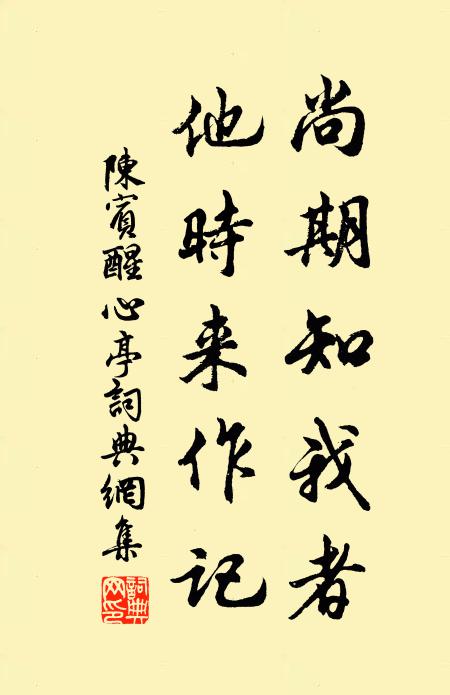 尚期知我者
他時来作記
陳賓醒心亭詞典網集
詞典网印